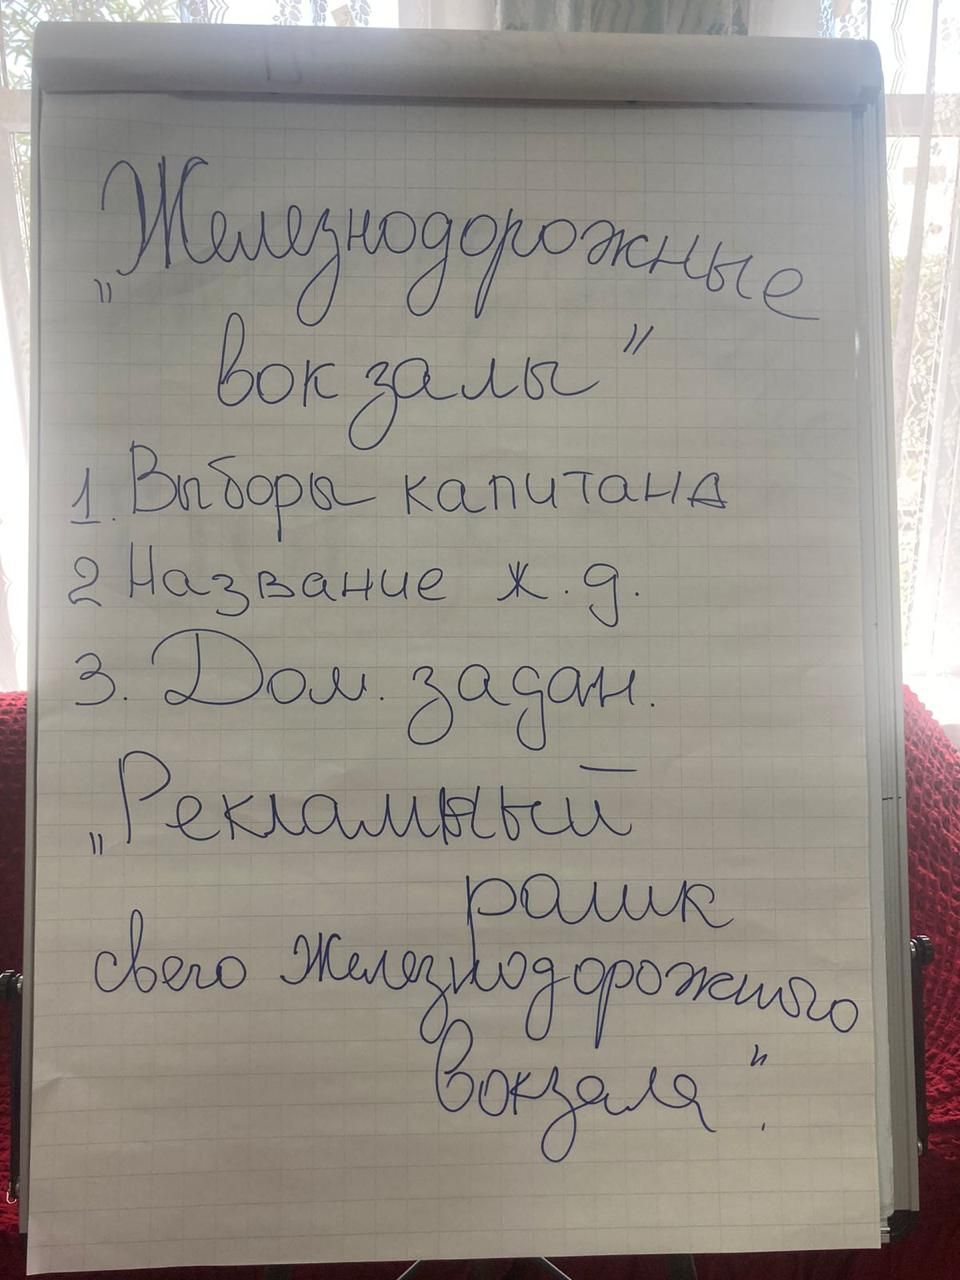 „Железнодорожные
вокзалы"
1. Выборы капитана
2 Название ж.д.
3. Дом. задан.
„Рекламный
ралик
свего железнодорожного
вокзала".